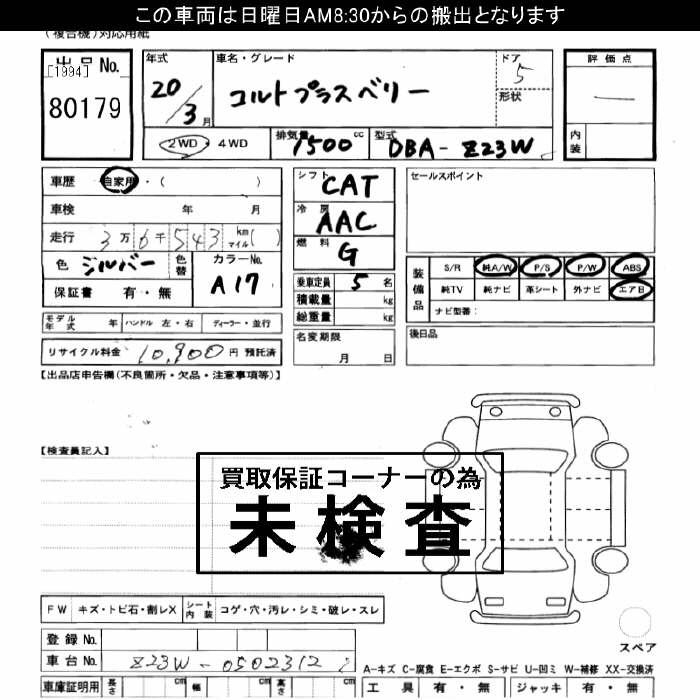 この車両は日曜日AM8:30からの搬出となります
(複合機)対応用紙
出品 No.
[1994]
80179
年式
20/3月
車名・グレード
コルトプラスベリー
ドア
5
形状
評価点
―
内装
2WD・4WD
排気量
1500cc
型式
DBA-Z23W
車歴 自家用・( )
車検 年 月
走行 3万6千543 km マイル( )
色 シルバー 色替
カラーNo.
A17
保証書 有・無
シフト
CAT
冷房
AAC
燃料
G
セールスポイント
装備品
S/R 純A/W P/S P/W ABS
純TV 純ナビ 革シート 外ナビ エアB
ナビ型番:
乗車定員 5名
積載量 kg
総重量 kg
モデル年式 年 ハンドル 左・右 ディーラー・並行
名変期限
月 日
後日品
リサイクル料金 10,900円 預託済
【出品店申告欄(不良箇所・欠品・注意事項等)】
【検査員記入】
買取保証コーナーの為
未検査
FW キズ・トビ石・割レX シート内装 コゲ・穴・汚レ・シミ・破レ・スレ
スペア
登録 No.
車台 No. Z23W-0502312
A-キズ C-腐食 E-エクボ S-サビ U-凹ミ W-補修 XX-交換済
車庫証明用 長さ cm 幅 cm 高さ cm
工具 有・無 ジャッキ 有・無